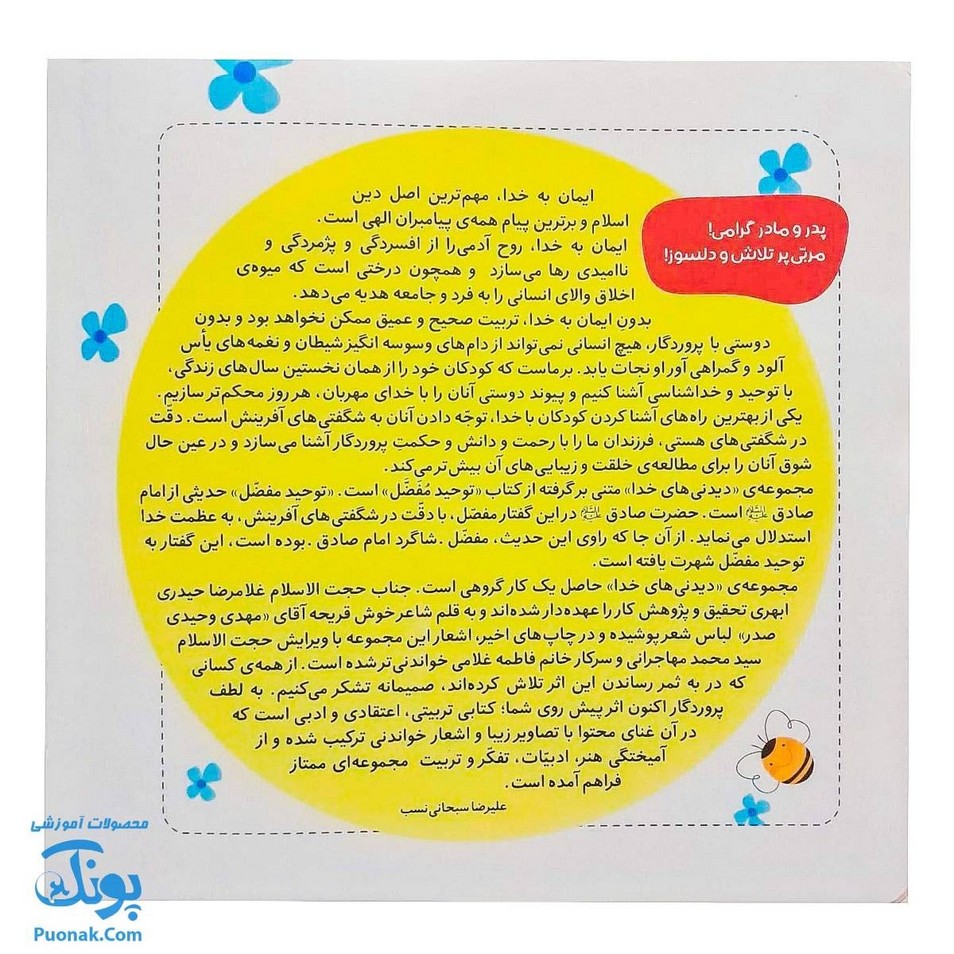 پدر و مادر گرامی!
مربّی پر تلاش و دلسوز!
ایمان به خدا، مهم‌ترین اصل دین
اسلام و برترین پیام همه‌ی پیامبران الهی است.
ایمان به خدا، روح آدمی را از افسردگی و پژمردگی و
ناامیدی رها می‌سازد و همچون درختی است که میوه‌ی
اخلاق والای انسانی را به فرد و جامعه هدیه می‌دهد.
بدون ایمان به خدا، تربیت صحیح و عمیق ممکن نخواهد بود و بدون
دوستی با پروردگار، هیچ انسانی نمی‌تواند از دام‌های وسوسه انگیز شیطان و نغمه‌های یأس
آلود و گمراهی آور او نجات یابد. بر ماست که کودکان خود را از همان نخستین سال‌های زندگی،
با توحید و خداشناسی آشنا کنیم و پیوند دوستی آنان را با خدای مهربان، هر روز محکم‌تر سازیم.
یکی از بهترین راه‌های آشنا کردن کودکان با خدا، توجّه دادن آنان به شگفتی‌های آفرینش است. دقّت
در شگفتی‌های هستی، فرزندان ما را با رحمت و دانش و حکمتِ پروردگار آشنا می‌سازد و در عین حال
شوق آنان را برای مطالعه‌ی خلقت و زیبایی‌های آن بیش‌تر می‌کند.
مجموعه‌ی «دیدنی‌های خدا» متنی برگرفته از کتاب «توحید مُفَضَّل» است. «توحید مفضّل» حدیثی از امام
صادق علیه‌السلام است. حضرت صادق علیه‌السلام در این گفتار مفصّل، با دقّت در شگفتی‌های آفرینش، به عظمت خدا
استدلال می‌نماید. از آن جا که راوی این حدیث، مفضّل .شاگرد امام صادق .بوده است، این گفتار به
توحید مفضّل شهرت یافته است.
مجموعه‌ی «دیدنی‌های خدا» حاصل یک کار گروهی است. جناب حجت الاسلام غلامرضا حیدری
ابهری تحقیق و پژوهش کار را عهده‌دار شده‌اند و به قلم شاعر خوش قریحه آقای «مهدی وحیدی
صدر» لباس شعر پوشیده و در چاپ‌های اخیر، اشعار این مجموعه با ویرایش حجت الاسلام
سید محمد مهاجرانی و سرکار خانم فاطمه غلامی خواندنی‌تر شده است. از همه‌ی کسانی
که در به ثمر رساندن این اثر تلاش کرده‌اند، صمیمانه تشکر می‌کنیم. به لطف
پروردگار اکنون اثر پیش روی شما؛ کتابی تربیتی، اعتقادی و ادبی است که
در آن غنای محتوا با تصاویر زیبا و اشعار خواندنی ترکیب شده و از
آمیختگی هنر، ادبیّات، تفکّر و تربیت مجموعه‌ای ممتاز
فراهم آمده است.
علیرضا سبحانی نسب
محصولات آموزشی
پونک
Puonak.Com